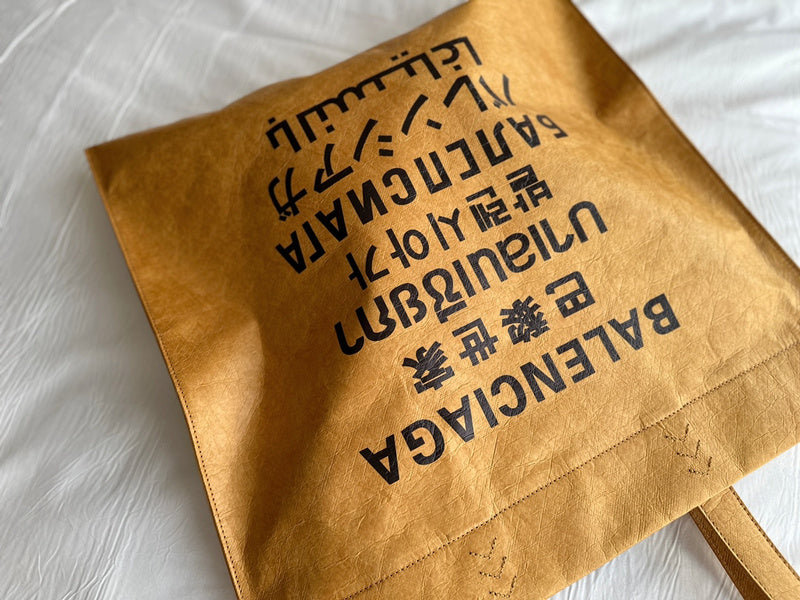 BALENCIAGA
巴黎世家
บาเลนเซียกา
발렌시아가
БАЛЕНСИАГА
バレンシアガ
بالنسياغا